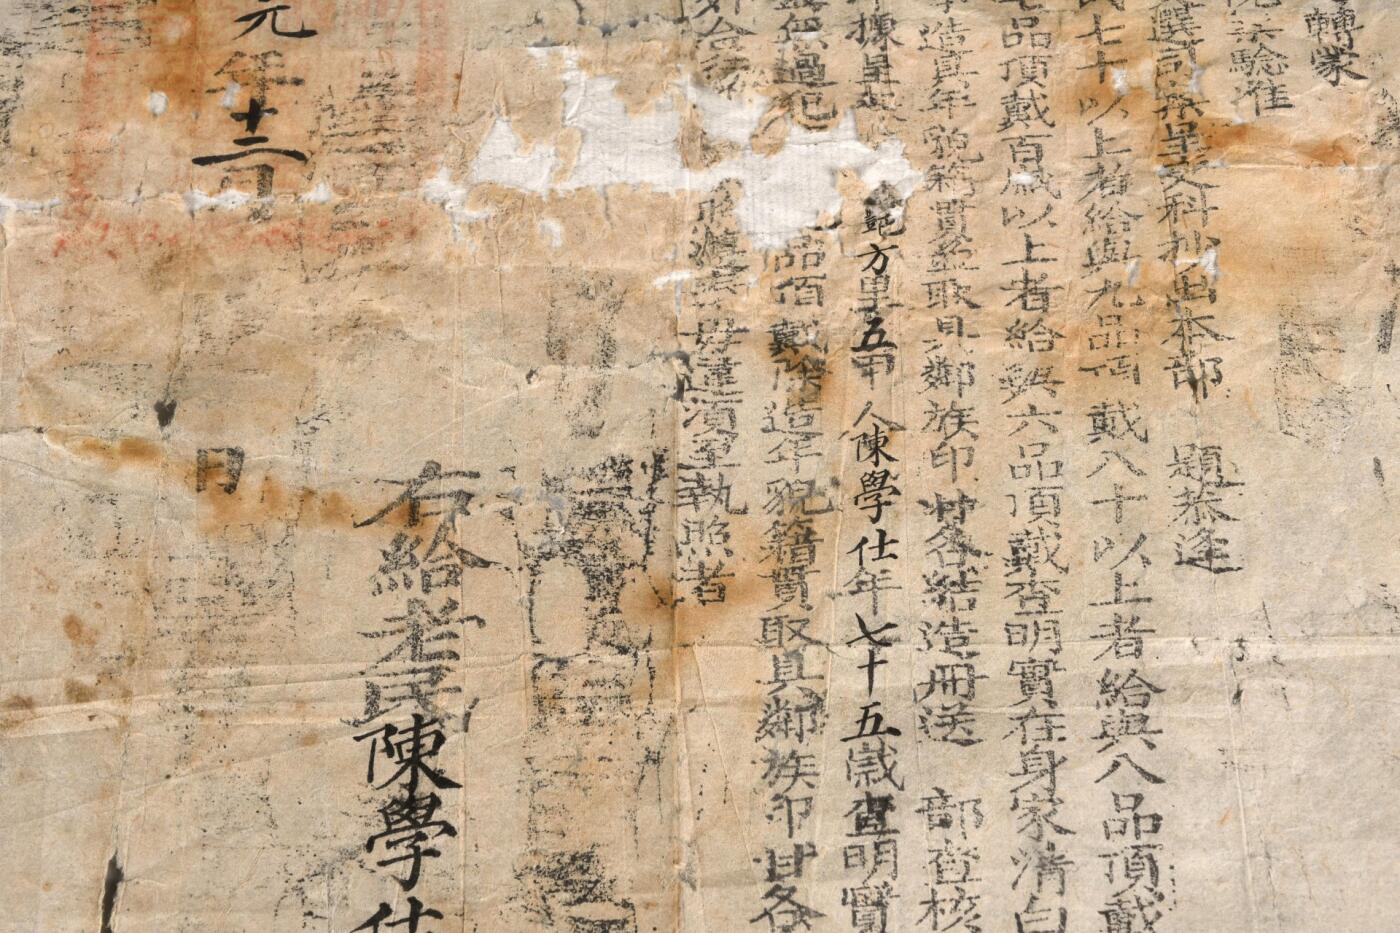 轉蒙
驗准
選司案呈吏科抄出本部 題恭逢
民七十以上者給與九品頂戴八十以上者給與八品頂戴
品頂戴百歲以上者給與六品頂戴查明實在身家清白
造具年貌籍貫並取具鄰族印甘各結造冊送 部查核
據呈 地方里五甲人陳學仕年七十五歲查明實
無過犯 品頂戴造年貌籍貫取具鄰族印甘各
毋違須至執照者
右給老民陳學仕
元年十二月 日